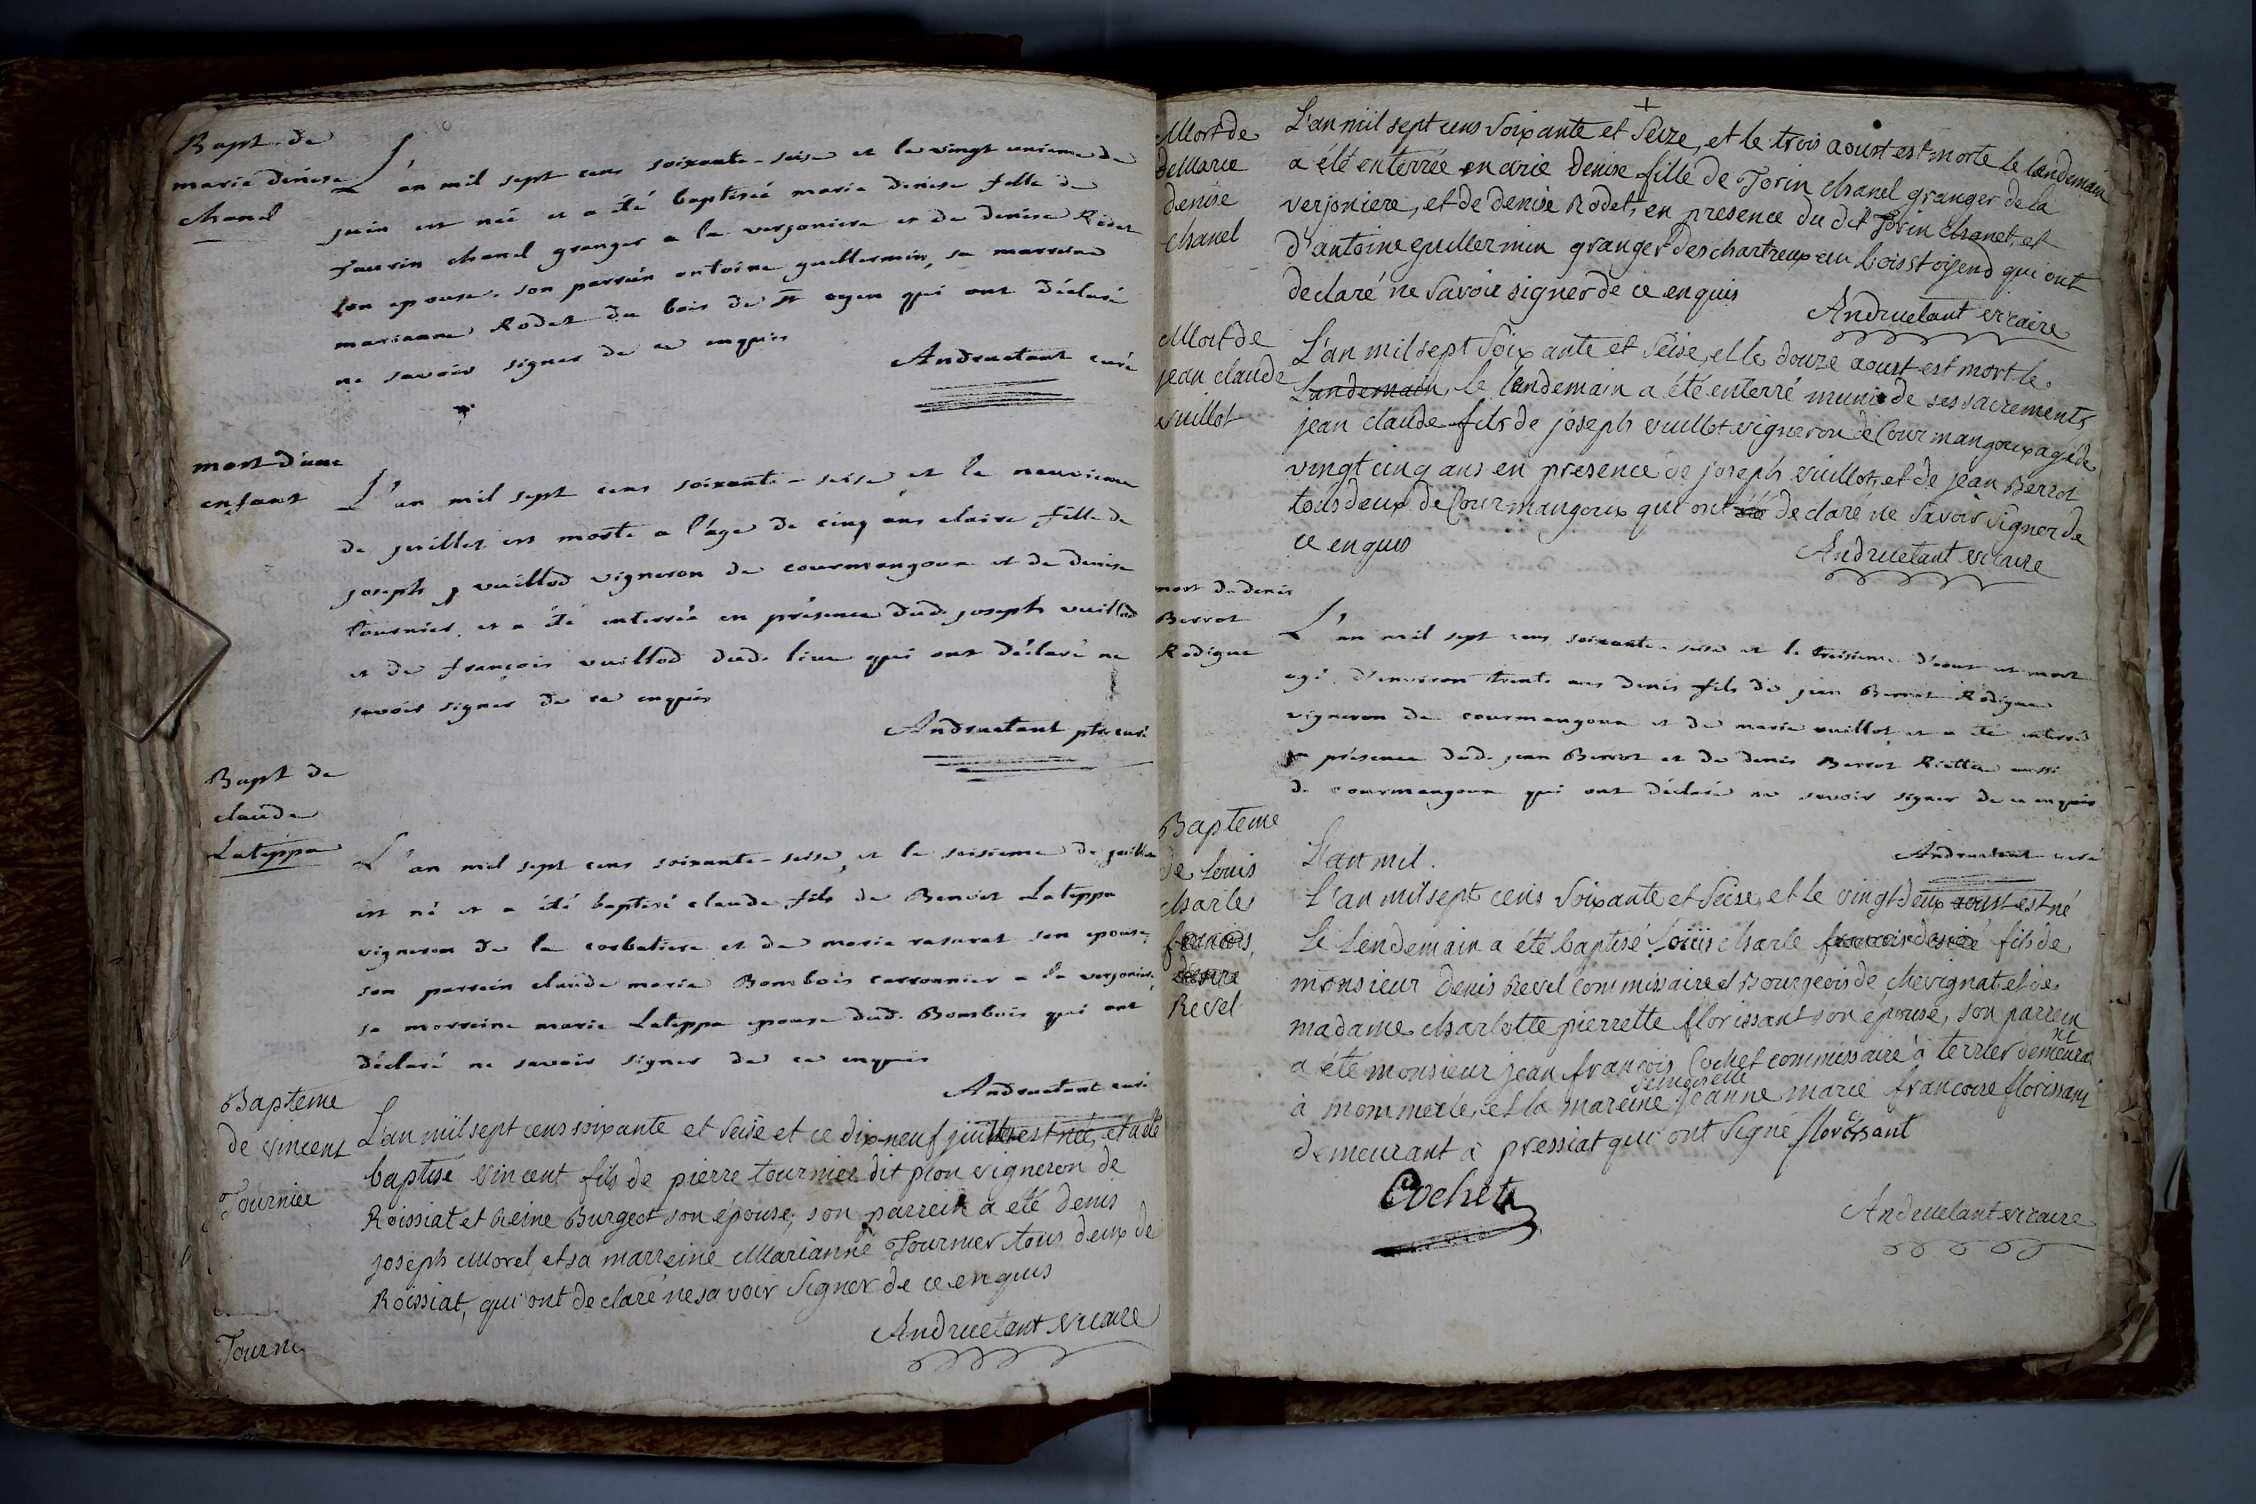 Bapt de
marie denise
chanel
L'an mil sept cens soixante-seise et le vingt unieme de
juin est née et a été baptisée marie denise fille de
Taurin chanel granger a la verjoniere et de denise Rodet
son epouse. son parrain antoine guillermin, sa marreine
marianne Rodet du bois de st oyen qui ont déclaré
ne savoir signer de ce enquis
Andruetant curé
mort d'une
enfant
L'an mil sept cens soixante-seise et le neuvieme
de juillet est morte a l'âge de cinq ans claire fille de
joseph vuillod vigneron de courmangoux et de denise
Tournier, et a été enterrée en présence dud. joseph vuillod
et de françois vuillod dud. lieu qui ont déclaré ne
savoir signer de ce enquis
Andruetant ptre curé
Bapt de
claude
Lateppe
L'an mil sept cens soixante-seise, et le seisieme de juillet
est né et a été baptisé claude fils de Benoit Lateppe
vigneron de la corbatiere et de marie rasurat son epouse,
son parrein claude marie Bombois carronnier a la verjoniere,
sa marreine marie Lateppe epouse dud. Bombois qui ont
déclaré ne savoir signer de ce enquis
Andruetant curé
Bapteme
de vincent
Tournier
L'an mil sept cens soixante et Seise et ce dix-neuf juillet est née, et a été
baptisé vincent fils de pierre tournier dit pion vigneron de
Roissiat et Reine Burgeot son épouse, son parrein a eté denis
joseph Morel, et sa marreine Marianne Tournier tous deux de
Roissiat, qui ont declaré ne savoir Signer de ce enquis
Andruetant vicaire
Tourni
Mort de
de Marie
denise
chanel
L'an mil sept cens Soixante et Seize, et le trois aoust est morte le landemain
a été enterrée marie Denise fille de Torin chanel granger de la
verjoniere, et de denise Rodet, en presence du dit Torin chanel, et
d'antoine guillermin granger des chartreux au bois St oyend qui ont
declaré ne Savoir signer de ce enquis
Andruetant vicaire
Mort de
jean claude
vuillot
L'an mil sept Soixante et Seise, et le douze aoust est mort le
landemain, le landemain a été enterré muni de ses sacrements
jean claude fils de joseph vuillot vigneron de Courmangoux agé de
vingt cinq ans en presence de joseph vuillot, et de jean Berrot
tous deux de Courmangoux qui ont été declaré ne Savoir Signer de
ce enquis
Andruetant vicaire
mort de denis
Berrot
Rodigue
L'an mil sept cens soixante-seise et le treisieme d'aout est mort
agé d'environ trente ans denis fils de jean Berrot Rodigue
vigneron de courmangoux et de marie vuillot, et a été enterré
en présence dud. jean Berrot et de denis Berrot aussi
de courmangoux qui ont déclaré ne savoir signer de ce enquis
Andruetant curé
Bapteme
de Louis
charles
francois,
désiré
Revel
L'an mil.
L'an mil sept cens Soixante et Seise, et le vingt deux aoust est né
Le Lendemain a été baptisé Louis charle francois desiré fils de
monsieur Denis Revel commissaire et Bourgeois de chevignat et de
madame charlotte pierrette florissant son épouse, son parrein
a été monsieur jean françois Cochet commissaire à terrier demeurant
à mommerle, et la mareine demoiselle jeanne marie francoise florissant
demeurant à pressiat qui ont Signé florissant
Cochet
Andruetant vicaire